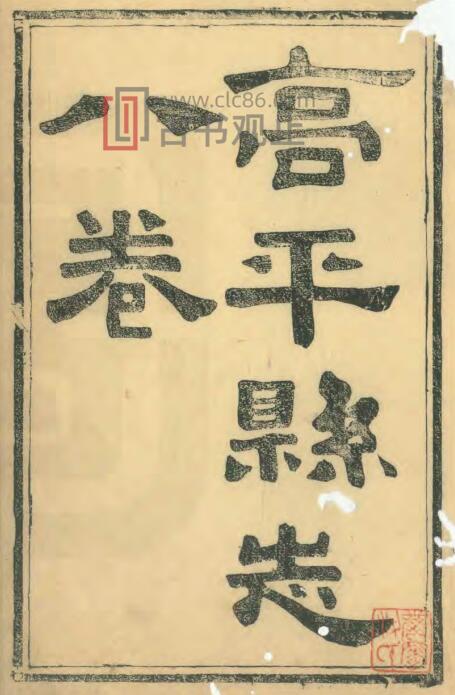 高平縣志
八卷
www.clc86.com
古书观止